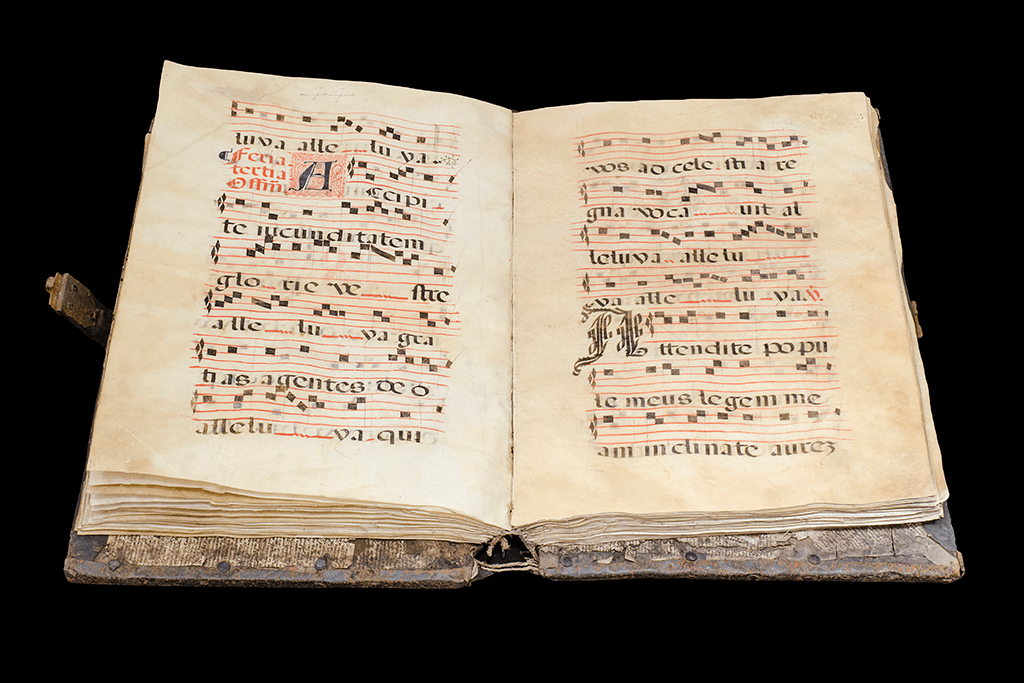 luya alle lu ya.
Feria
tertia
Offi͞m
A
ccipi
te iucunditatem
glo rie ve stre
alle lu ya gra
ti as agentes deo
allelu ya qui
vos ad cele sti a re
gna voca uit al
leluya allelu
ya alle lu ya. V.
A ttendite popu
le meus legem me
am inclinate aurez